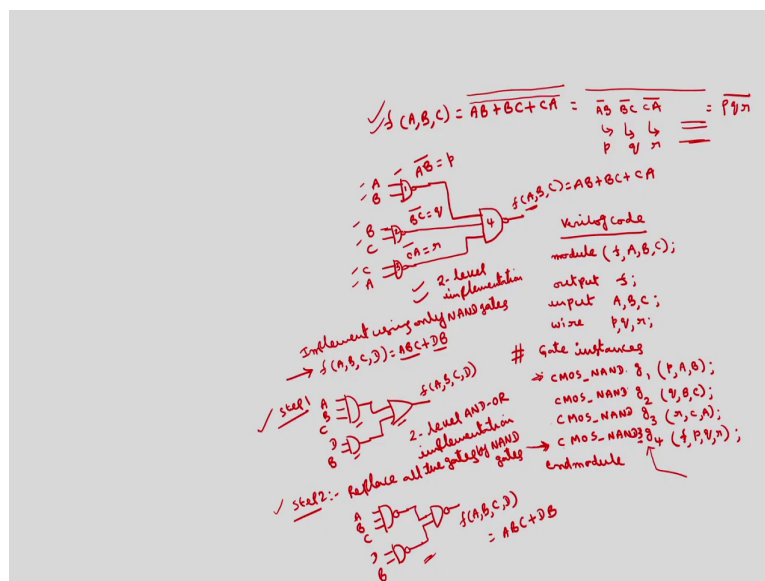 f(A,B,C) = \overline{\overline{AB+BC+CA}} = \overline{\overline{AB} \overline{BC} \overline{CA}} = \overline{pqr}
p q r
A
B
1
\overline{AB} = p
B
C
2
\overline{BC} = q
C
A
3
\overline{CA} = r
4
f(A,B,C) = AB+BC+CA
2-level
implementation
Verilog code
module (f,A,B,C);
output f;
input A,B,C;
wire p,q,r;
# Gate instances
CMOS_NAND g1 (p,A,B);
CMOS_NAND g2 (q,B,C);
CMOS_NAND g3 (r,C,A);
CMOS_NAND3 g4 (f,p,q,r);
endmodule
Implement using only NAND gates
f(A,B,C,D) = ABC+DB
Step1
A
B
C
D
B
f(A,B,C,D)
2-level AND-OR
implementation
Step2:- Replace all the gates by NAND
gates
A
B
C
D
B
f(A,B,C,D)
= ABC+DB